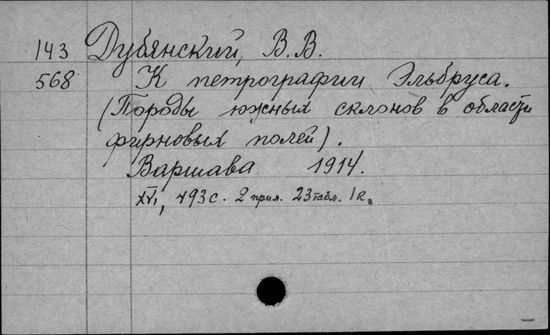 143 Дубянский, В. В.
568 К петрографии Эльбруса.
(Породы южных склонов в области
фирновых полей).
Варшава 1914.
XVI, 493 с. 2 прил. 23 табл. 1 к.